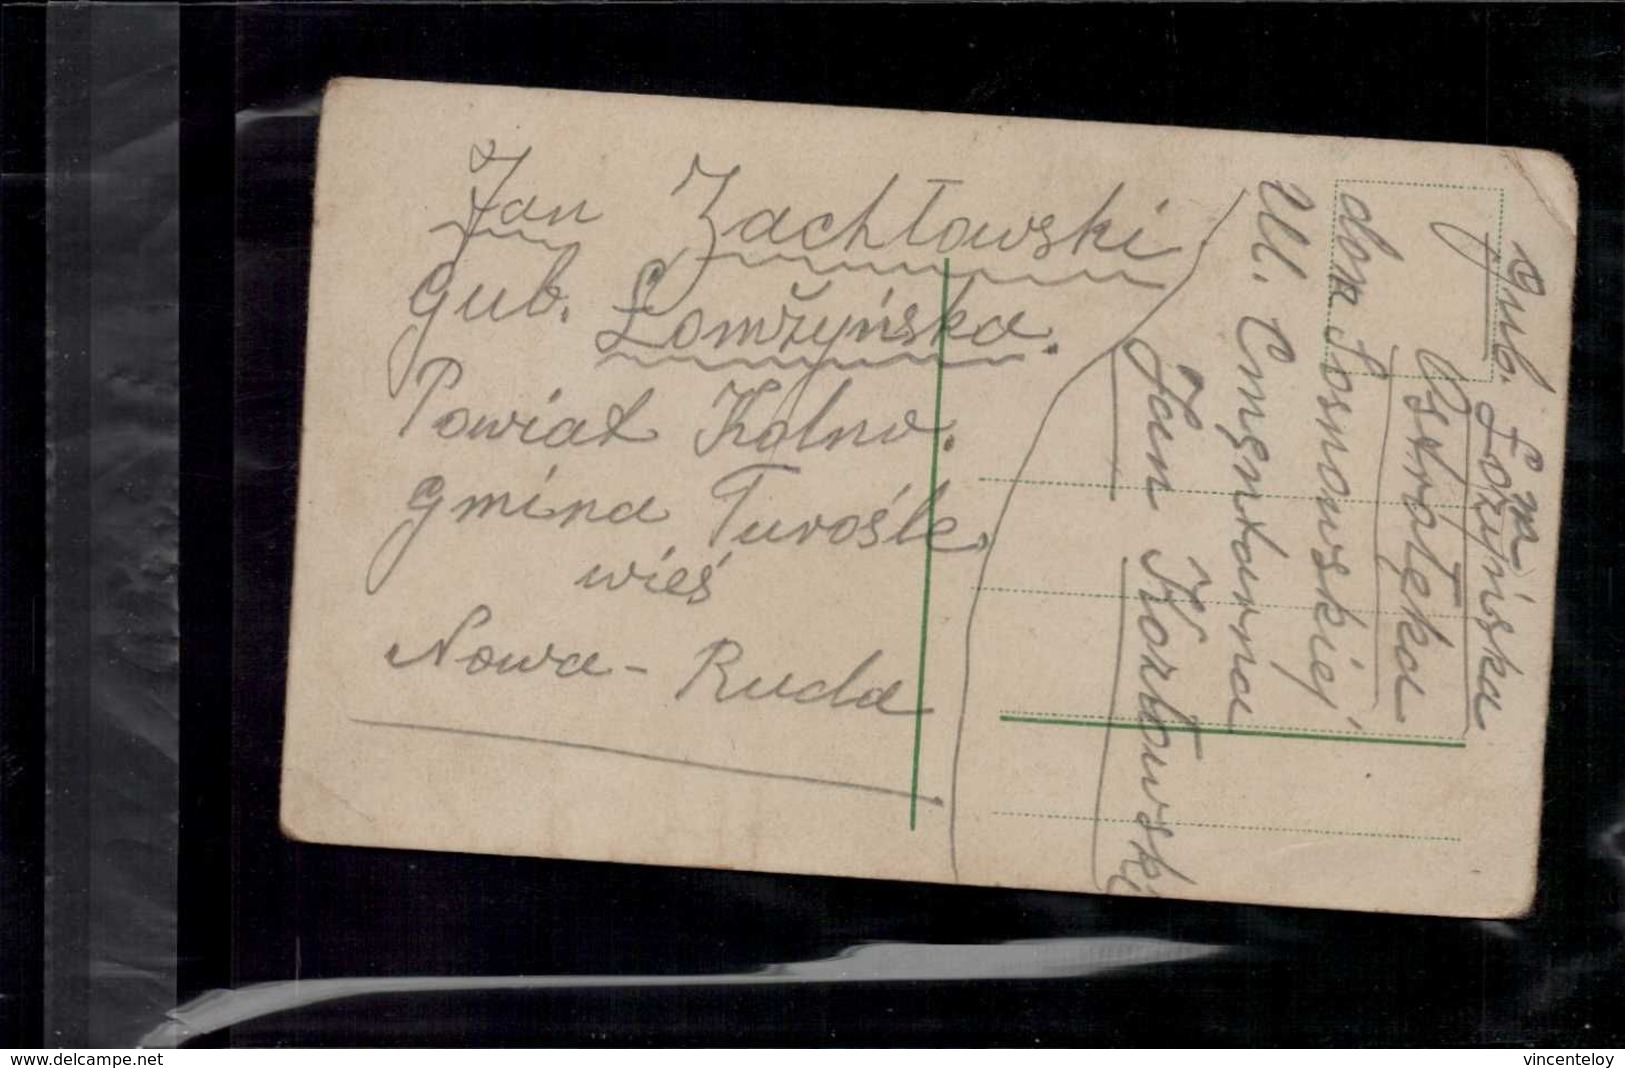 Jan Zachłowski
Gub. Łomżyńska.
Powiat Kolno.
gmina Turośle.
wieś
Nowa-Ruda
Gub. Łomżyńska
Ostrołęka
dm Sosnowskiej
Ul. Cmentarna
Jan Kozłowski
www.delcampe.net
vincenteloy